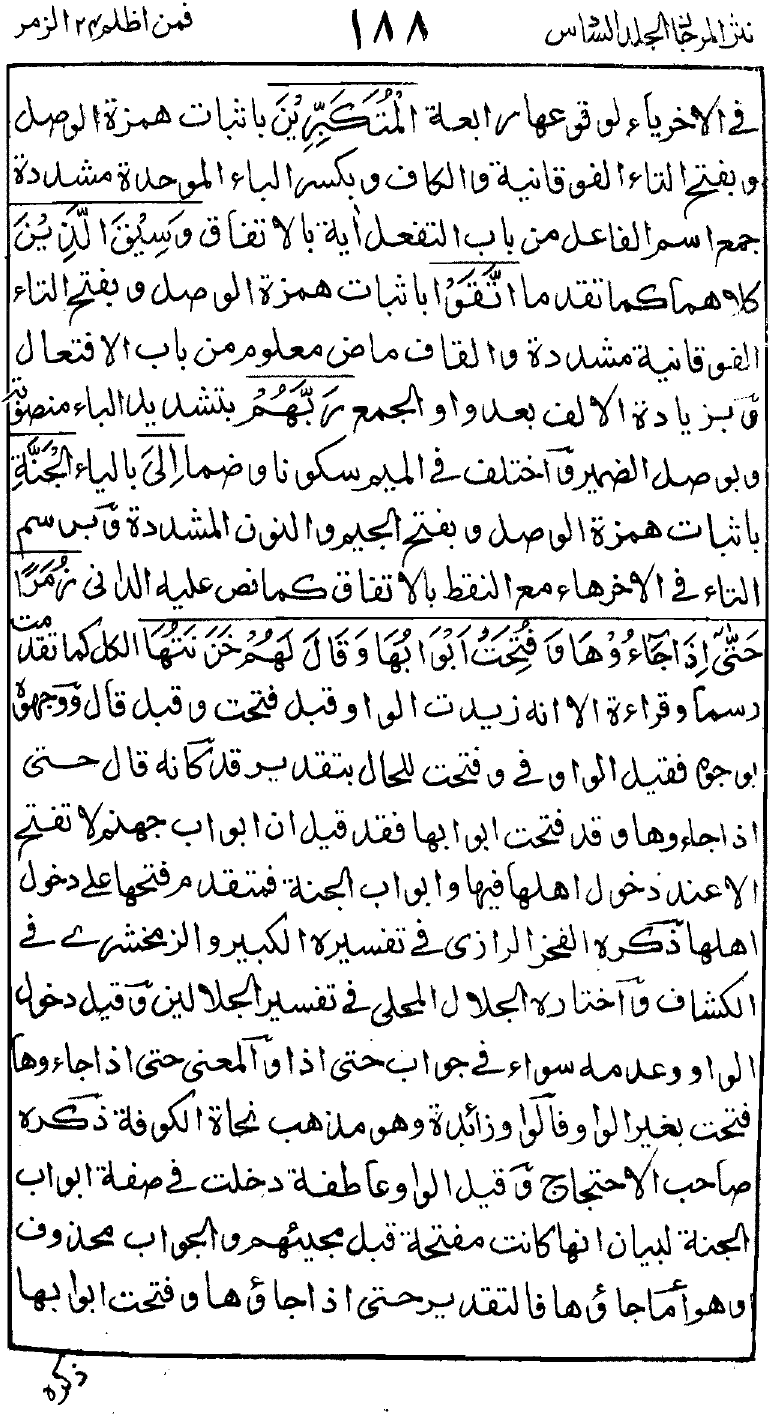 نثر المرجان الجلد السادس ١٨٨ فمن اظلم ٢٤ الزمر
في الاخر ياء لوقوعها رابعة الْمُتَكَبِّرِيْنَ باثبات همزة الوصل
وبفتح التاء الفوقانية والكاف وبكسر الباء الموحدة مشددة
جمع اسم الفاعل من باب التفعل اية بالاتفاق وَسِيْقَ الَّذِيْنَ
كلاهما كما تقدما اتَّقَوْا باثبات همزة الوصل وبفتح التاء
الفوقانية مشددة والقاف ماض معلوم من باب الافتعال
وبزيادة الالف بعد واو الجمع رَبَّهُمْ بتشديد الباء منصوبة
وبوصل الضمير واختلف في الميم سكونا وضما اِلَى بالياء الْجَنَّةِ
باثبات همزة الوصل وبفتح الجيم والنون المشددة وبرسم
التاء في الاخر هاء مع النقط بالاتفاق كما نص عليه الداني زُمَرًا
حَتّٰىٓ اِذَا جَآءُوْهَا وَفُتِحَتْ اَبْوَابُهَا وَقَالَ لَهُمْ خَزَنَتُهَا الكل كما تقدمت
رسما وقراءة الا انه زيدت الواو قبل فتحت وقبل قال ووجهوه
بوجوه فقيل الواو في وفتحت للحال بتقدير قد كانه قال حتى
اذا جاءوها وقد فتحت ابوابها فقد قيل ان ابواب جهنم لا تفتح
الا عند دخول اهلها فيها وابواب الجنة فمتقدم فتحها على دخول
اهلها ذكره الفخر الرازي في تفسيره الكبير والزمخشري في
الكشاف واختاره الجلال المحلي في تفسير الجلالين وقيل دخول
الواو وعدمه سواء في جواب حتى اذا والمعنى حتى اذا جاءوها
فتحت بغير الواو فالواو زائدة وهو مذهب نحاة الكوفة ذكره
صاحب الاحتجاج وقيل الواو عاطفة دخلت في صفة ابواب
الجنة لبيان انها كانت مفتحة قبل مجيئهم والجواب محذوف
وهو أما جاؤها فالتقدير حتى اذا جاؤها وفتحت ابوابها
ذكره